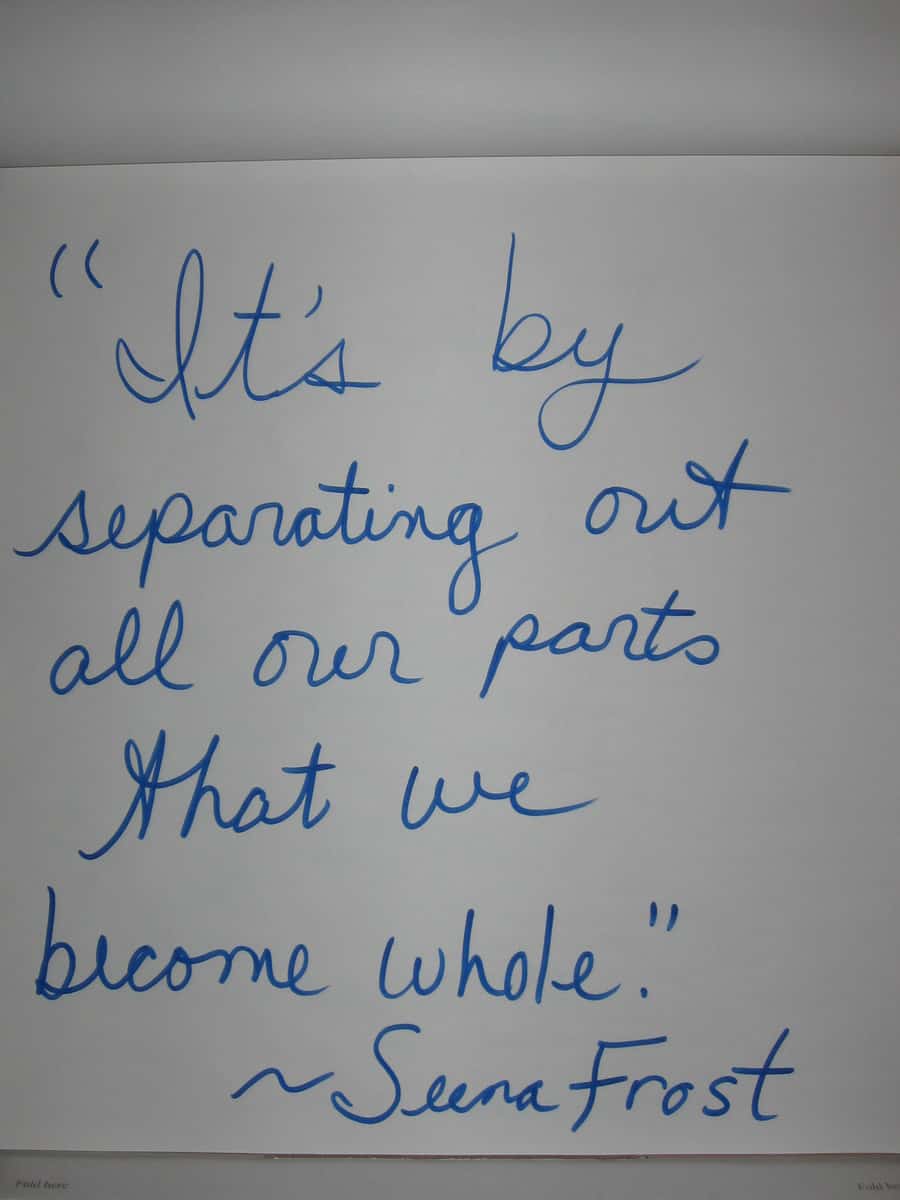 "It's by
separating out
all our parts
that we
become whole."
~Seena Frost
Fold here